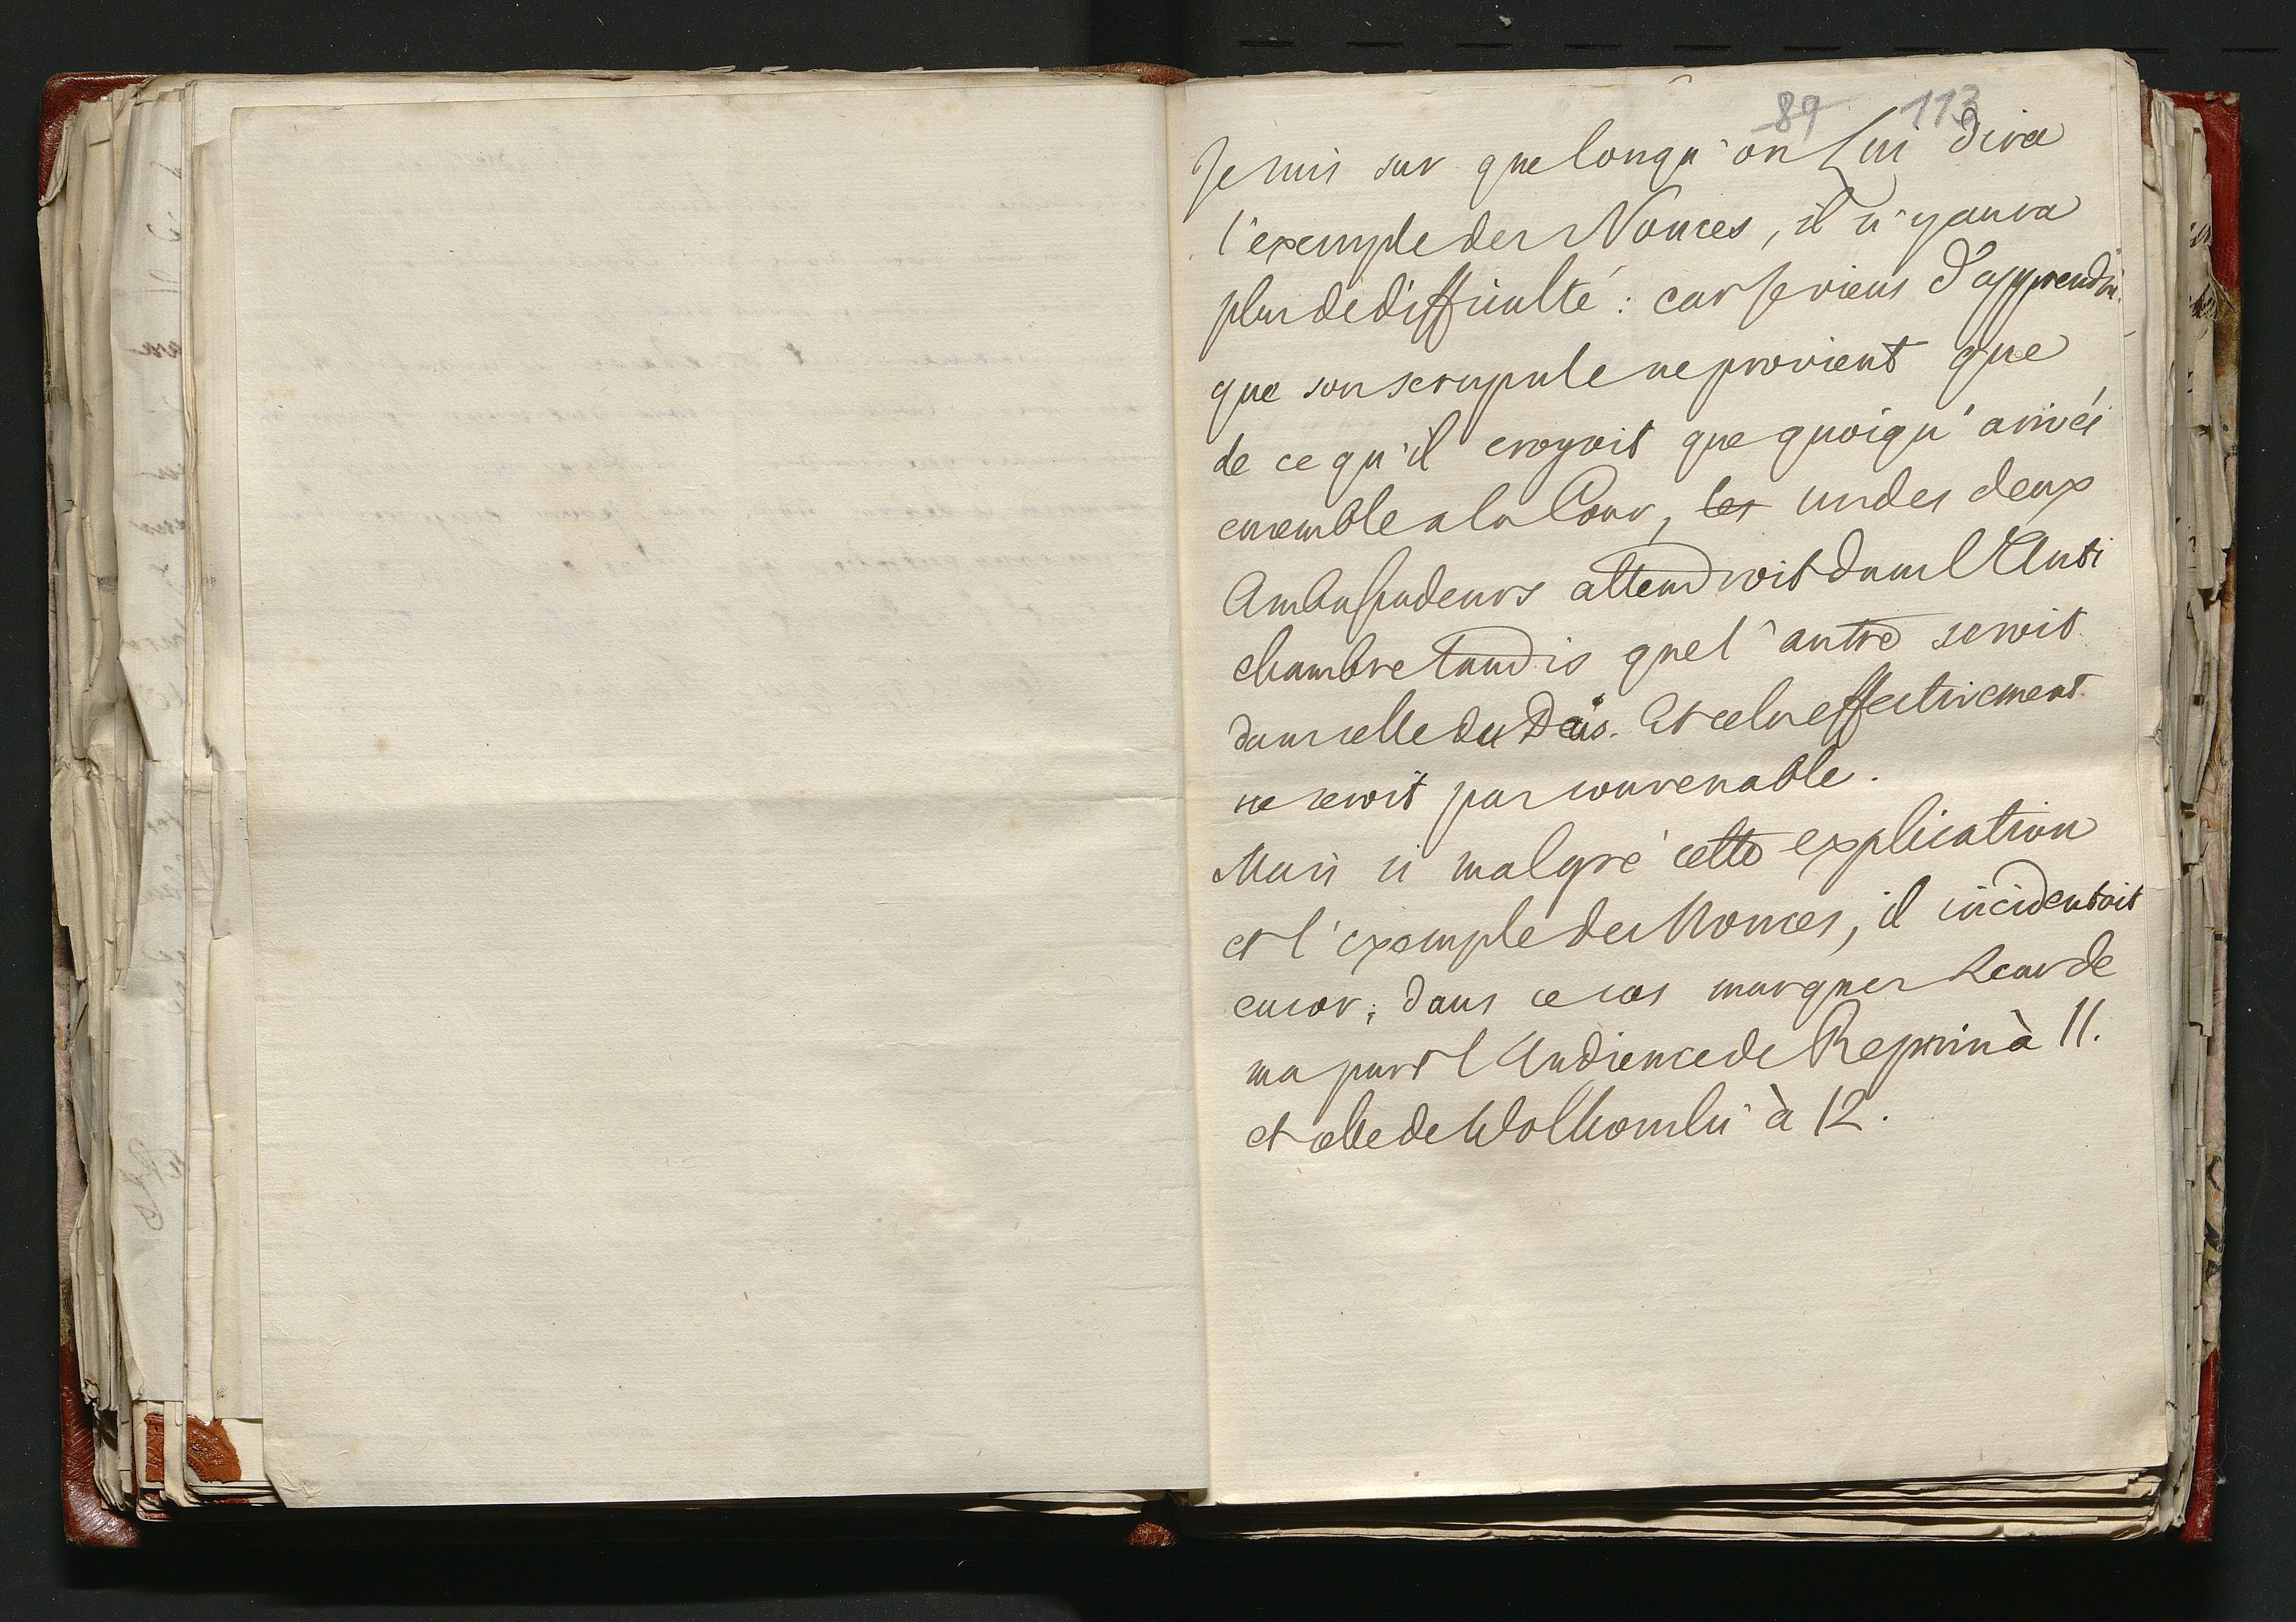 89 113
Je suis sur que lorsqu'on Lui dira
l'exemple des Nonces, il n'y aura
plus de difficulté : car Je viens d'apprendre
que son scrupule ne provient que
de ce qu'il croyoit que quoiqu'arrivés
ensemble a la Cour, les un des deux
Ambassadeurs attendroit dans l'Anti
chambre tandis quel'autre seroit
dans celle du Dais. Et cela effectivement
ne seroit pas convenable.
Mais si malgré cette explication
et l'exemple des Nonces, il incidentoit
encor ; dans ce cas marquer Leur de
ma part l'Audience de Repnin à 11.
et celle de Wolkonski à 12.